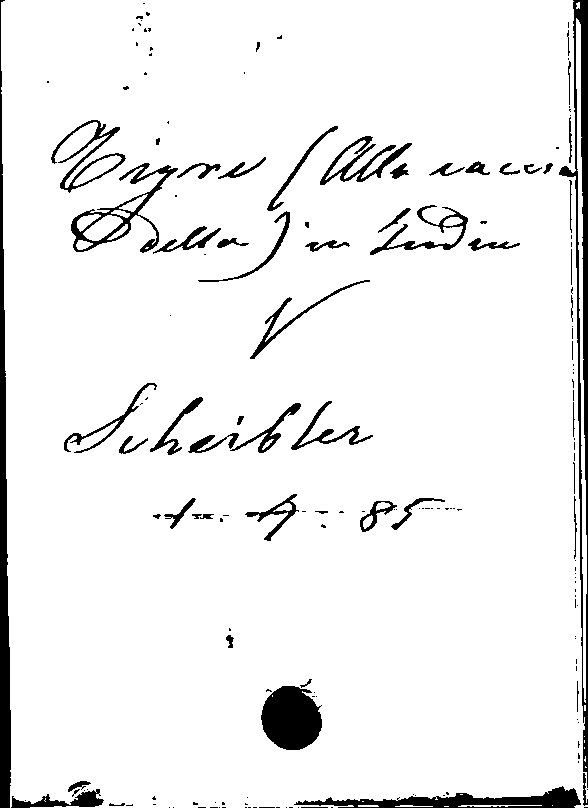 Tigre (Alla caccia
della) in India
V
Scheibler
1. A. 85